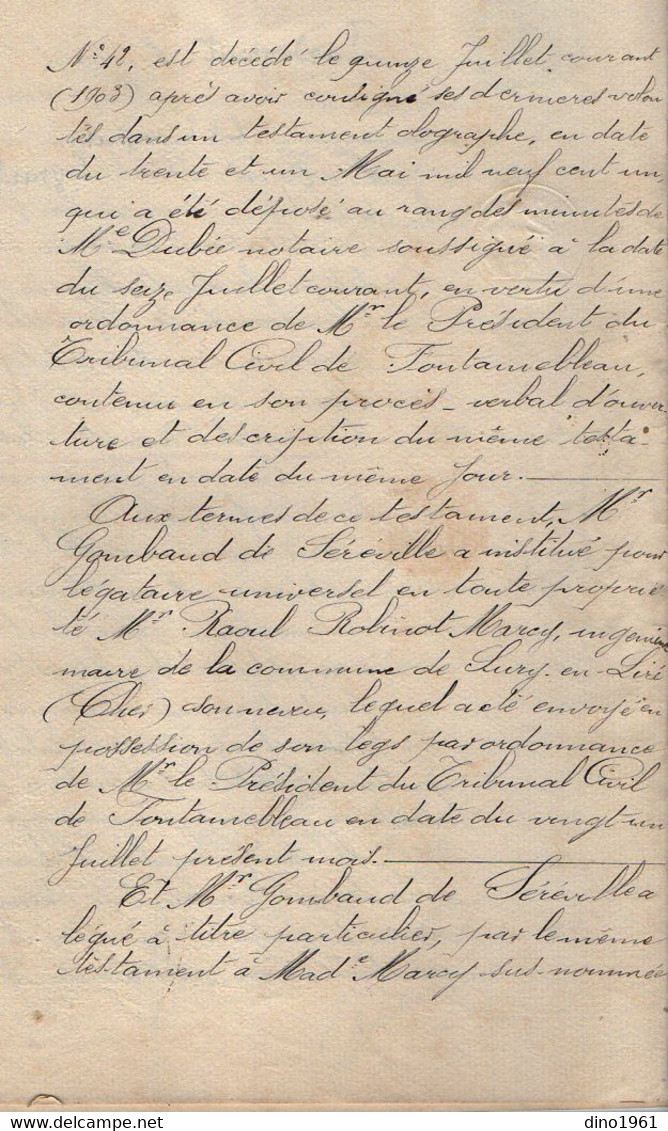 N.° 42, est décédé le quinze Juillet courant
(1903) après avoir consigné ses dernieres volon
tés dans un testament olographe, en date
du trente et un Mai mil neuf cent un,
qui a été déposé au rang des minutes de
M.e Dubée notaire soussigné à la date
du seize Juillet courant, en vertu d'une
ordonnance de M.r le Président du
Tribunal Civil de Fontainebleau,
contenue en son procès-verbal d'ouver
ture et description du même testa-
ment en date du même jour.
Aux termes de ce testament, M.r
Gombaud de Séréville a institué pour
légataire universel en toute proprié
té M.r Raoul Robinot Marcy, ingénieur
maire de la commune de Sury-en-Léré
(Cher) son neveu, lequel a été envoyé en
possession de son legs par ordonnance
de M.r le Président du Tribunal Civil
de Fontainebleau en date du vingt un
Juillet présent mois.
Et M.r Gombaud de Séréville a
légué à titre particulier, par le même
testament à Mad.e Marcy sus-nommée
delcampe.net
dino1961